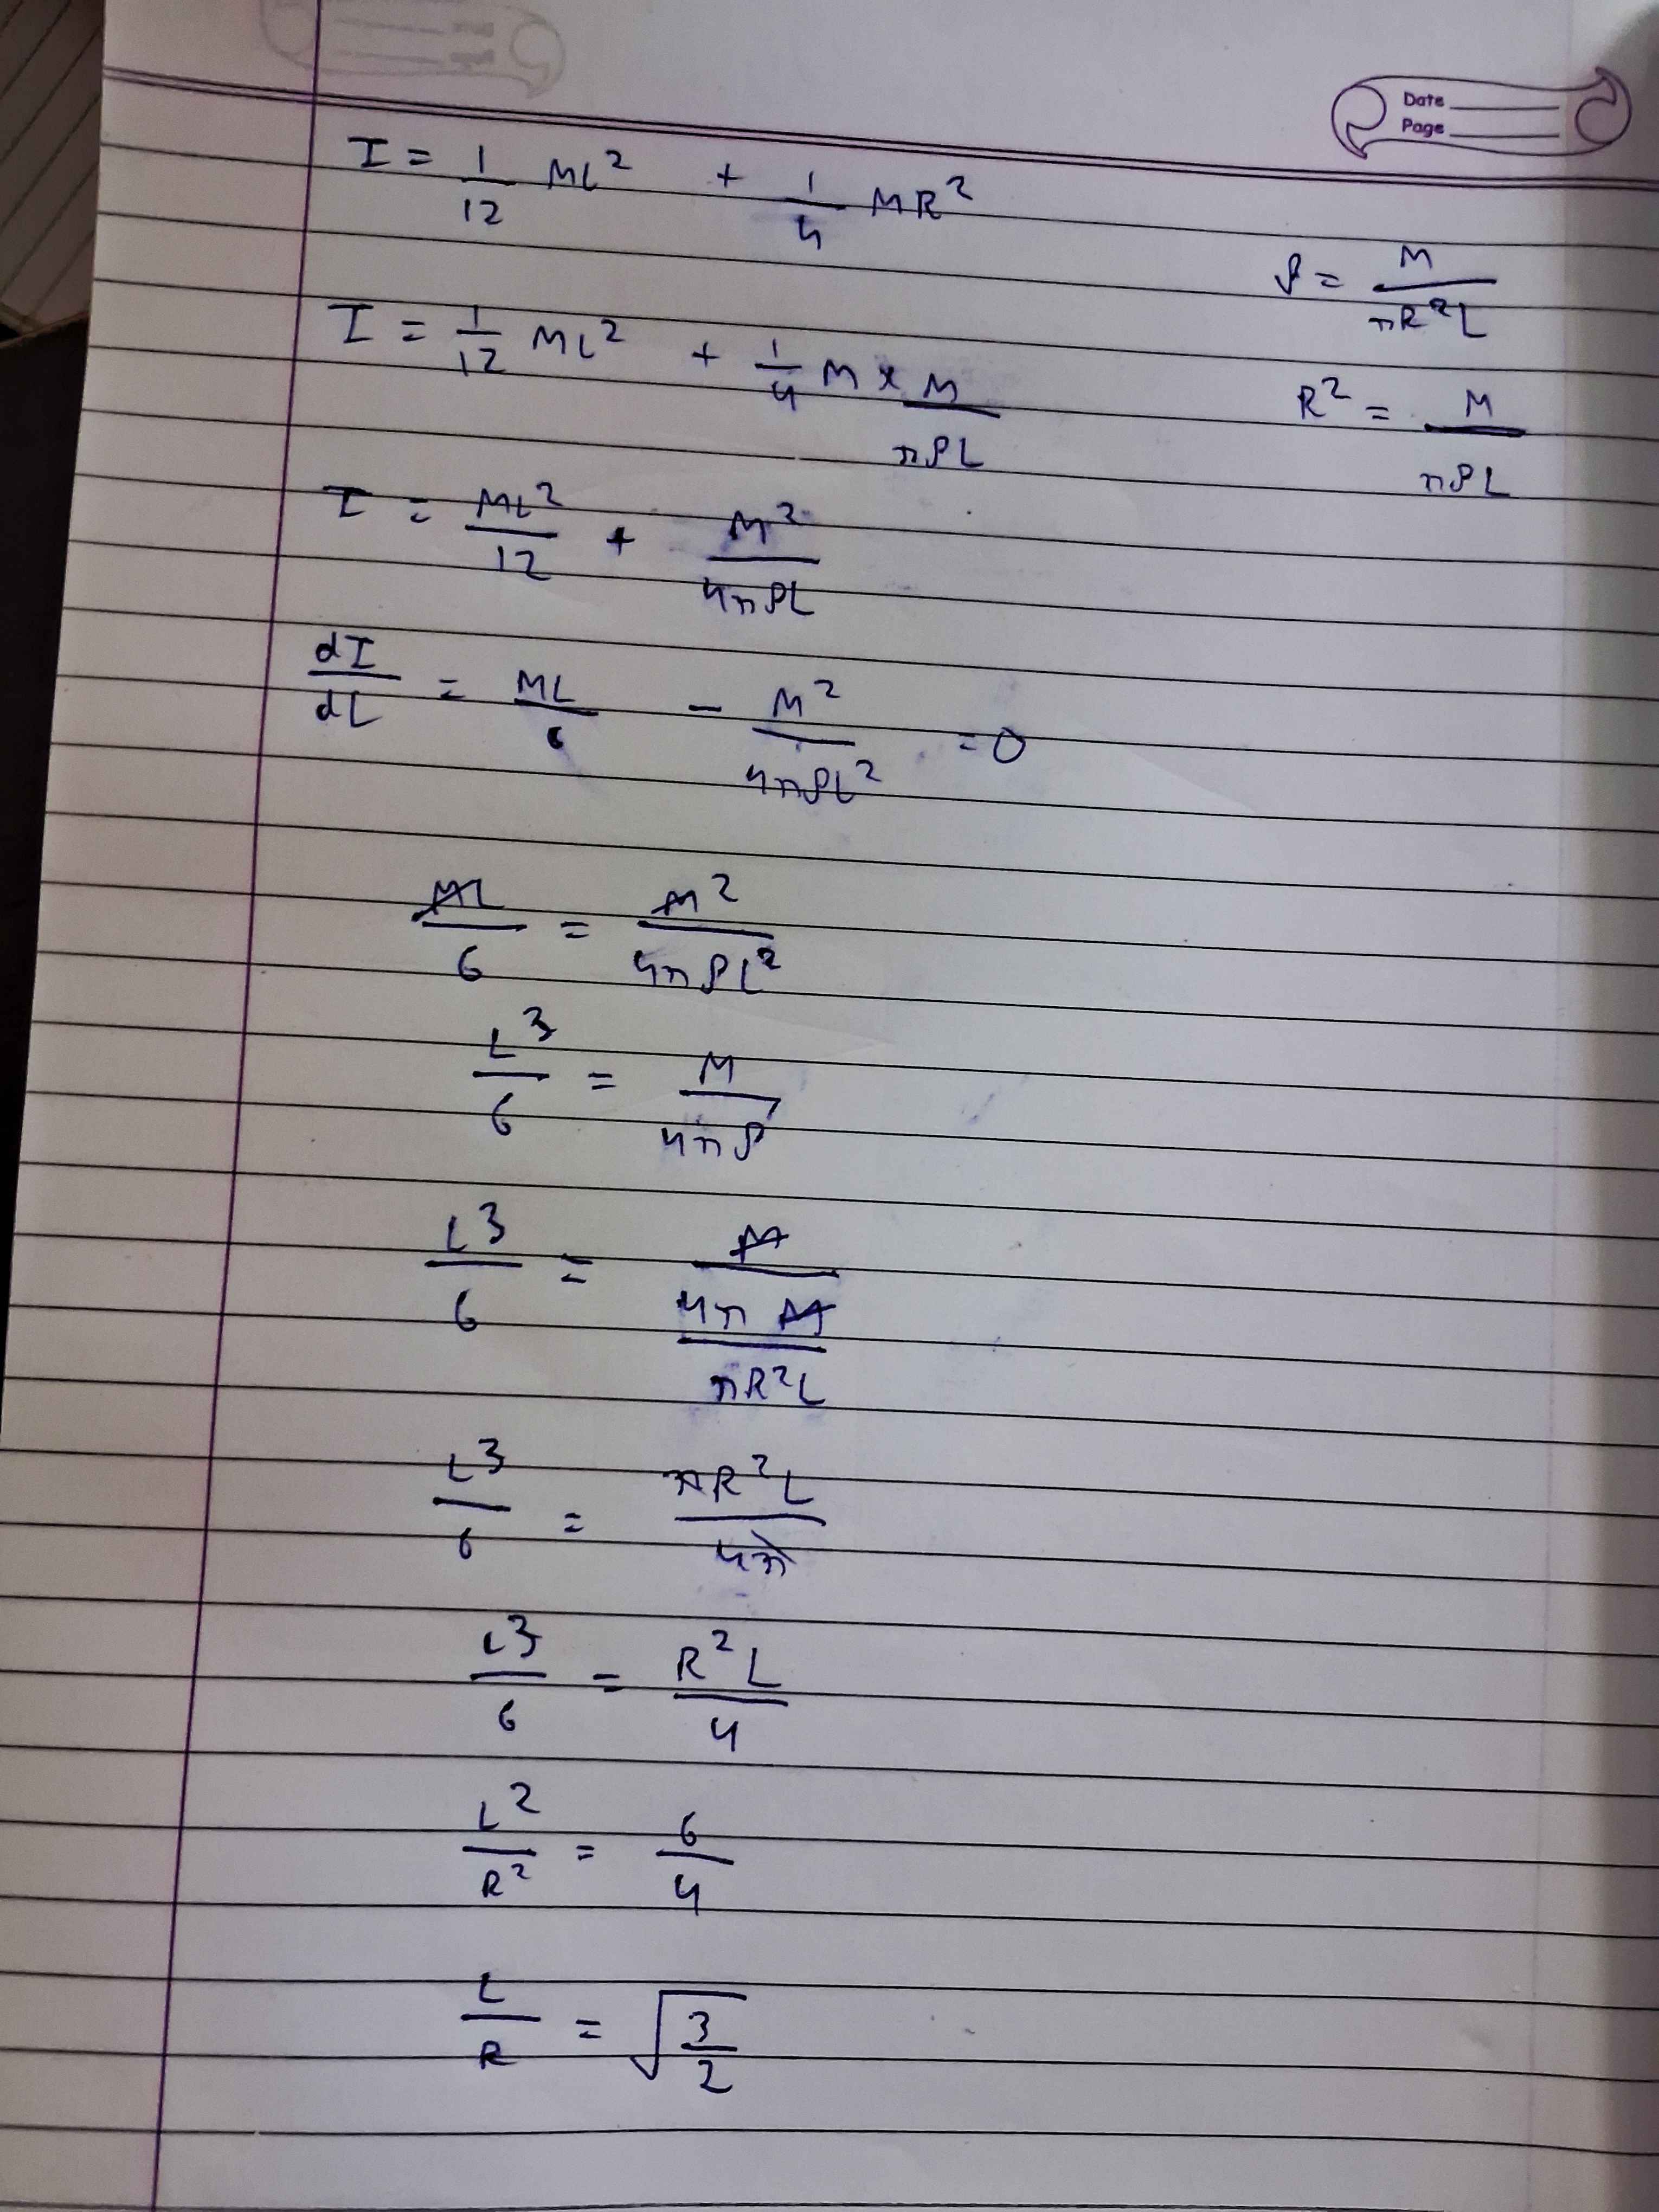 Date
Page
I = 1/12 ML² + 1/4 MR²
ρ = M/πR²L
I = 1/12 ML² + 1/4 M × M/πρL
R² = M/πρL
I = ML²/12 + M²/4πρL
dI/dL = ML/6 - M²/4πρL² = 0
ML/6 = M²/4πρL²
L³/6 = M/4πρ
L³/6 = M/(4πM/πR²L)
L³/6 = πR²L/4π
L³/6 = R²L/4
L²/R² = 6/4
L/R = √(3/2)